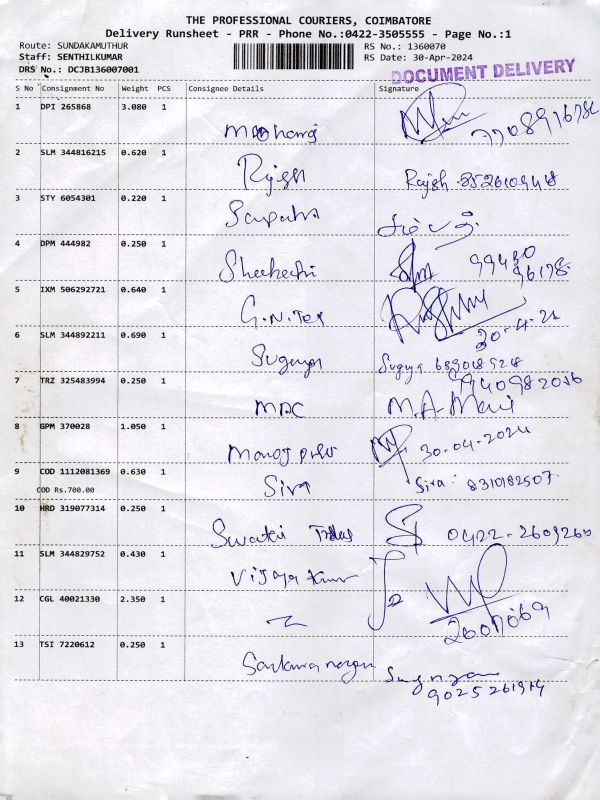 THE PROFESSIONAL COURIERS, COIMBATORE
Delivery Runsheet - PRR - Phone No.:0422-3505555 - Page No.:1
Route: SUNDAKAMUTHUR RS No.: 1360070
Staff: SENTHILKUMAR RS Date: 30-Apr-2024
DRS No.: DCJB136007001
DOCUMENT DELIVERY
S No Consignment No Weight PCS Consignee Details Signature
1 DPI 265868 3.080 1
2 SLM 344816215 0.620 1
Rajesh Rajesh 8526109448
3 STY 6054301 0.220 1
4 DPM 444982 0.250 1
99430
96178
5 IXM 506292721 0.640 1
G.N.Tex
30-4-24
6 SLM 344892211 0.690 1
Suganya
7 TRZ 325483994 0.250 1
9940982056
MAC M.A-Mani
8 GPM 370028 1.050 1
Manoj 30-04-2024
9 COD 1112081369 0.630 1
COD Rs.700.00
Siva Siva: 8310182507.
10 HRD 319077314 0.250 1
Swathi 0422-2609260
11 SLM 344829752 0.430 1
Vijaya Kumar
12 CGL 40021330 2.350 1
2607069
13 TSI 7220612 0.250 1
9025261914